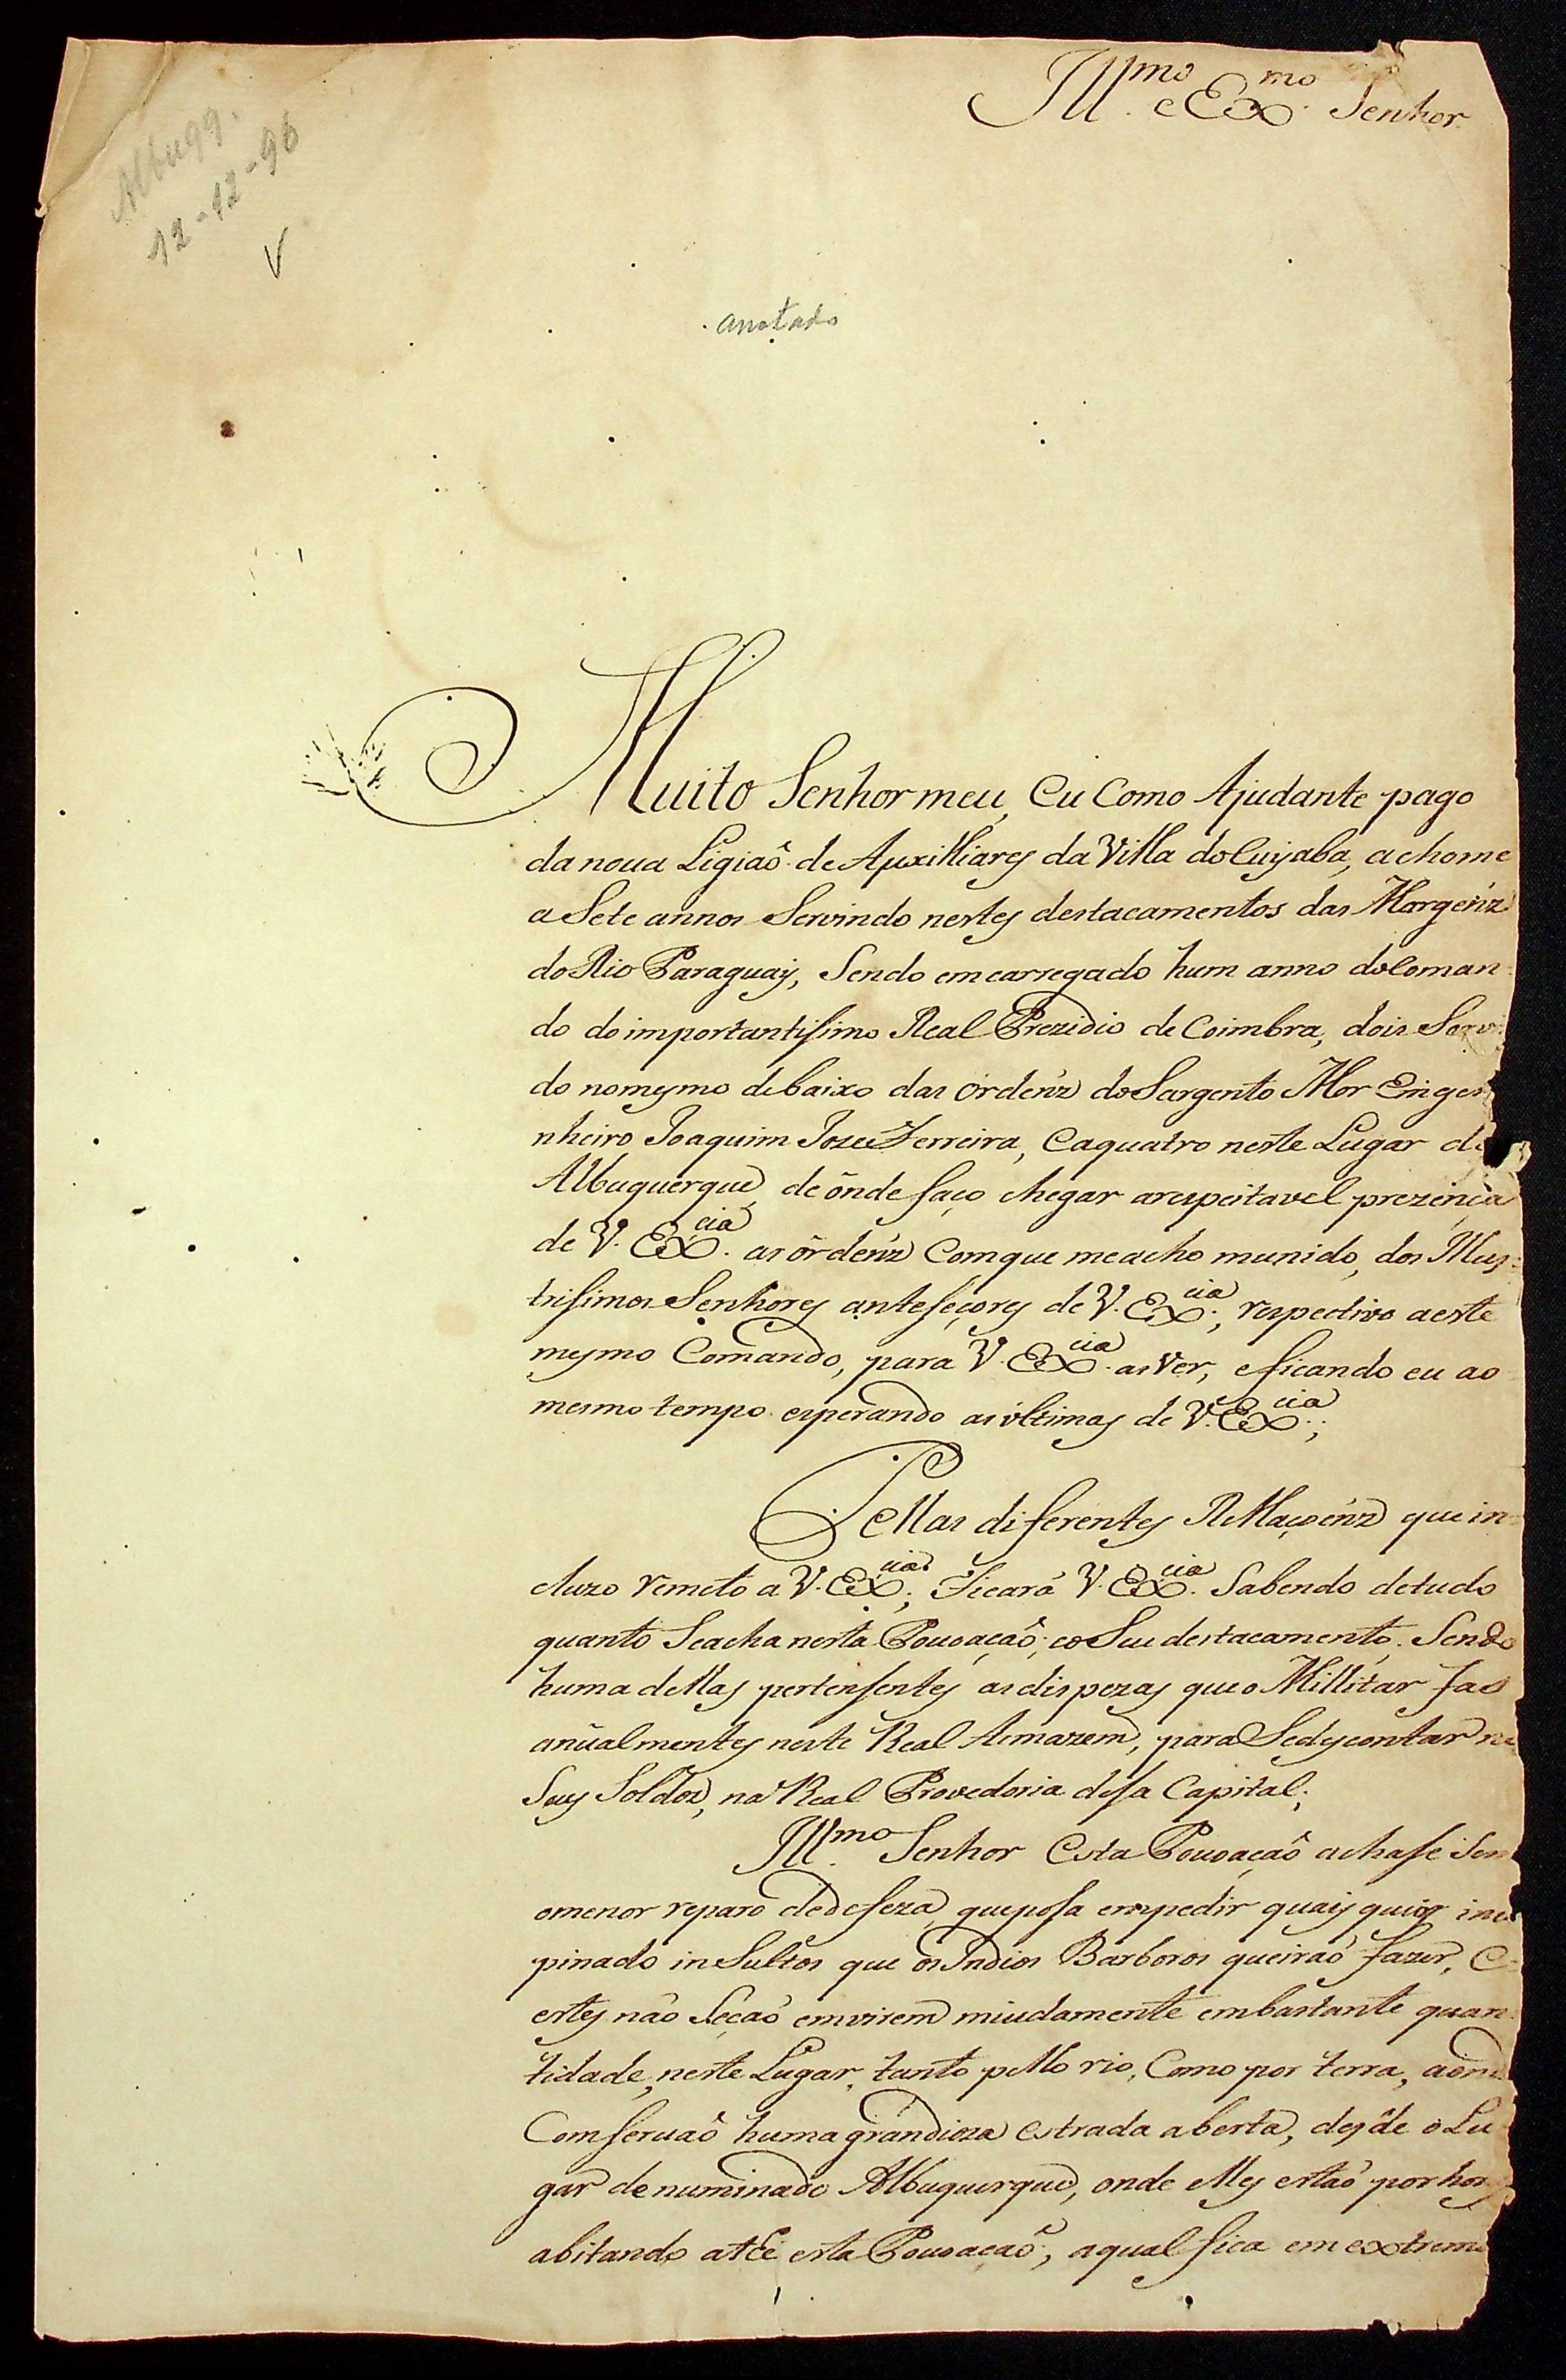 Ill.mo e Ex.mo Senhor
Albuqq.
12-12-96
V
anotado
Muito Senhor meu, Eu Como Ajudante pago
da noua Ligiaõ de Auxilliares da Villa do Cuyaba, achome
a Sete annos Servindo nestes destacamentos das Margeńz
do Rio Paraguay, Sendo emcarregado hum anno do Coman=
do do importantisimo Real Prezidio de Coimbra, dois Servi
do no mesmo debaixo das órdeńz do Sargento Mor Eingen
nheiro Joaquim Joze Ferreira, e a quatro neste Lugar de
Albuquerque, de ônde faço chegar a respeitavel prezencia
de V. Ex.cia as órdeńz Com que me acho munido, dos Illus=
trisimos Senhores anteseçores de V. Ex.cia; respectivo a este
mesmo Comando, para V. Ex.cia as Ver, e ficando eu ao
mesmo tempo esperando as últimas de V. Ex.cia;
Pellas diferentes Rellaçoeńz que in=
cluzo remeto a V. Ex.cia; Ficará V. Ex.cia Sabendo de tudo
quanto Se acha nesta Pouoaçaõ; e o Seu destacamento. Sendo
huma dellas pertensentes as dispezas que o Millitar fas
anũalmentes neste Real Armazem, para Se descontar no
Seus Soldos, na Real Provedoria desa Capital;
Ill.mo Senhor Esta Pouoaçaõ achase Sem
o menor reparo de defeza, que posa empedir quais quier ino
pinado inSultos que os Indios Barboros queiraõ fazer, E
estes não Seçaõ em virem miudamente em bastante quan
tidade, neste Lugar, tanto pello rio, Como por terra, aond
Comseruaõ huma grandioza estrada aberta, desde o Lu
gar denuminado Albuquerque, onde elles estaõ por hora
abitando athe esta Pouoaçaõ, a qual fica em extremo